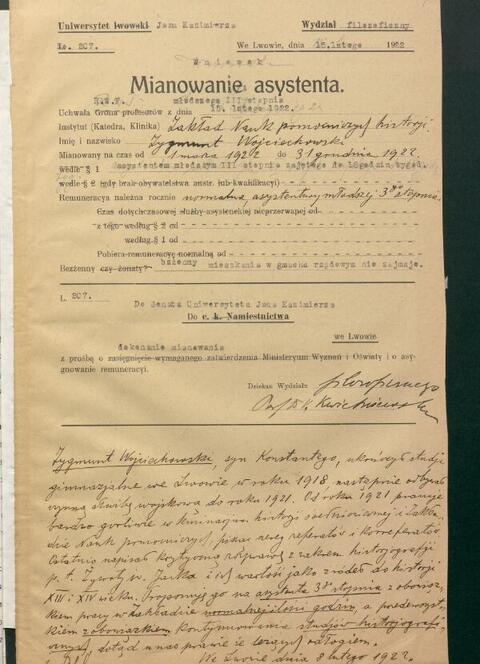 Uniwersytet lwowski Jana Kazimierza Wydział filozoficzny
L. 207. We Lwowie, dnia 15. lutego 1922
Wniosek
Mianowanie asystenta.
młodszego III stopnia
Uchwała Grona profesorów z dnia 15. lutego 1922.
Instytut (Katedra, Klinika) Zakład Nauk pomocniczych historji
Imię i nazwisko Zygmunt Wojciechowski
Mianowany na czas od 1 marca 1922 do 31 grudnia 1922
według § 1 asystentem młodszym III stopnia zajętego do 18 godzin tygod.
według § 2 (gdy brak obywatelstwa austr. lub kwalifikacyi)
Remuneracya należna rocznie normalna asystentury młodszej 3go stopnia
Czas dotychczasowej służby asystenckiej nieprzerwanej od
z tego według § 2 od
według § 1 od
Pobiera remuneracyę normalną od
Bezżenny czy żonaty bezżenny mieszkania w gmachu rządowym nie zajmuje.
L. 207.
Do Senatu Uniwersytetu Jana Kazimierza
Do c. k. Namiestnictwa
we Lwowie
dokonanie mianowania
z prośbą o zasięgnięcie wymaganego zatwierdzenia Ministeryum Wyznań i Oświaty i o asy-
gnowanie remuneracyi.
Dziekan Wydziału filozoficznego
Prof Dr
Zygmunt Wojciechowski, syn Konstantego, ukończył studja
gimnazjalne we Lwowie w roku 1918, następnie odbywał
czynną służbę wojskową do roku 1921. Od roku 1921 pracuje
bardzo gorliwie w Seminarjum historji i Zakła-
dzie Nauk pomocniczych, pisząc szereg referatów i korreferatów.
Ostatnio napisał krytyczną rozprawę z zakresu historjografji
p. t. Żywoty św. Jacka i ich wartość jako źródeł do historji
XIII i XIV wieku. Proponuję go na asystenta 3go stopnia z obowiąz-
kiem pracy w Zakładzie normalnej ilości godzin, a
kiem z obowiązkiem kontynuowania studjów historjografi-
cznych, dotąd u nas prawie leżących odłogiem.
We Lwowie dnia 8 lutego 1922